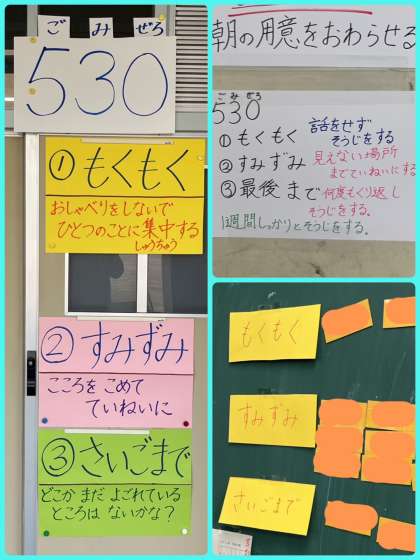 ごみぜろ
530
①もくもく
おしゃべりをしないで
ひとつのことに集中する
しゅうちゅう
②すみずみ
こころをこめて
ていねいに
③さいごまで
どこかまだよごれている
ところはないかな?
朝の用意をおわらせる
ごみぜろ
530
①もくもく 話をせず
そうじをする
②すみずみ 見えない場所
までていねいにする
③最後まで 何度もくり返し
そうじをする。
1週間しっかりとそうじをする。
もくもく
すみずみ
さいごまで